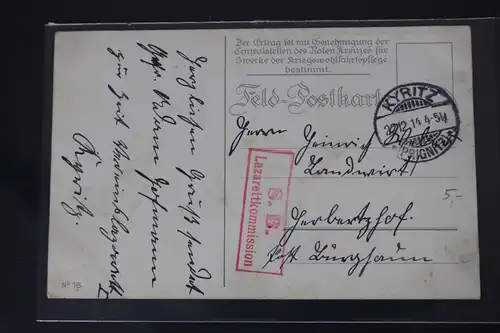 Der Ertrag ist mit Genehmigung der
Centralstellen des Roten Kreuzes für
Zwecke der Kriegswohlfahrtspflege
bestimmt.
Feld-Postkarte
KYRITZ
12.14.4-5N
(PRIGNITZ)
Herrn Heinrich
Landwirt
Herbertzhof.
Post Burghaun.
S. B.
Lazarettkommission
5,-
Herzlichen Gruß sendet
zur Zeit Vereinslazarett
Kyritz.
Nº 18